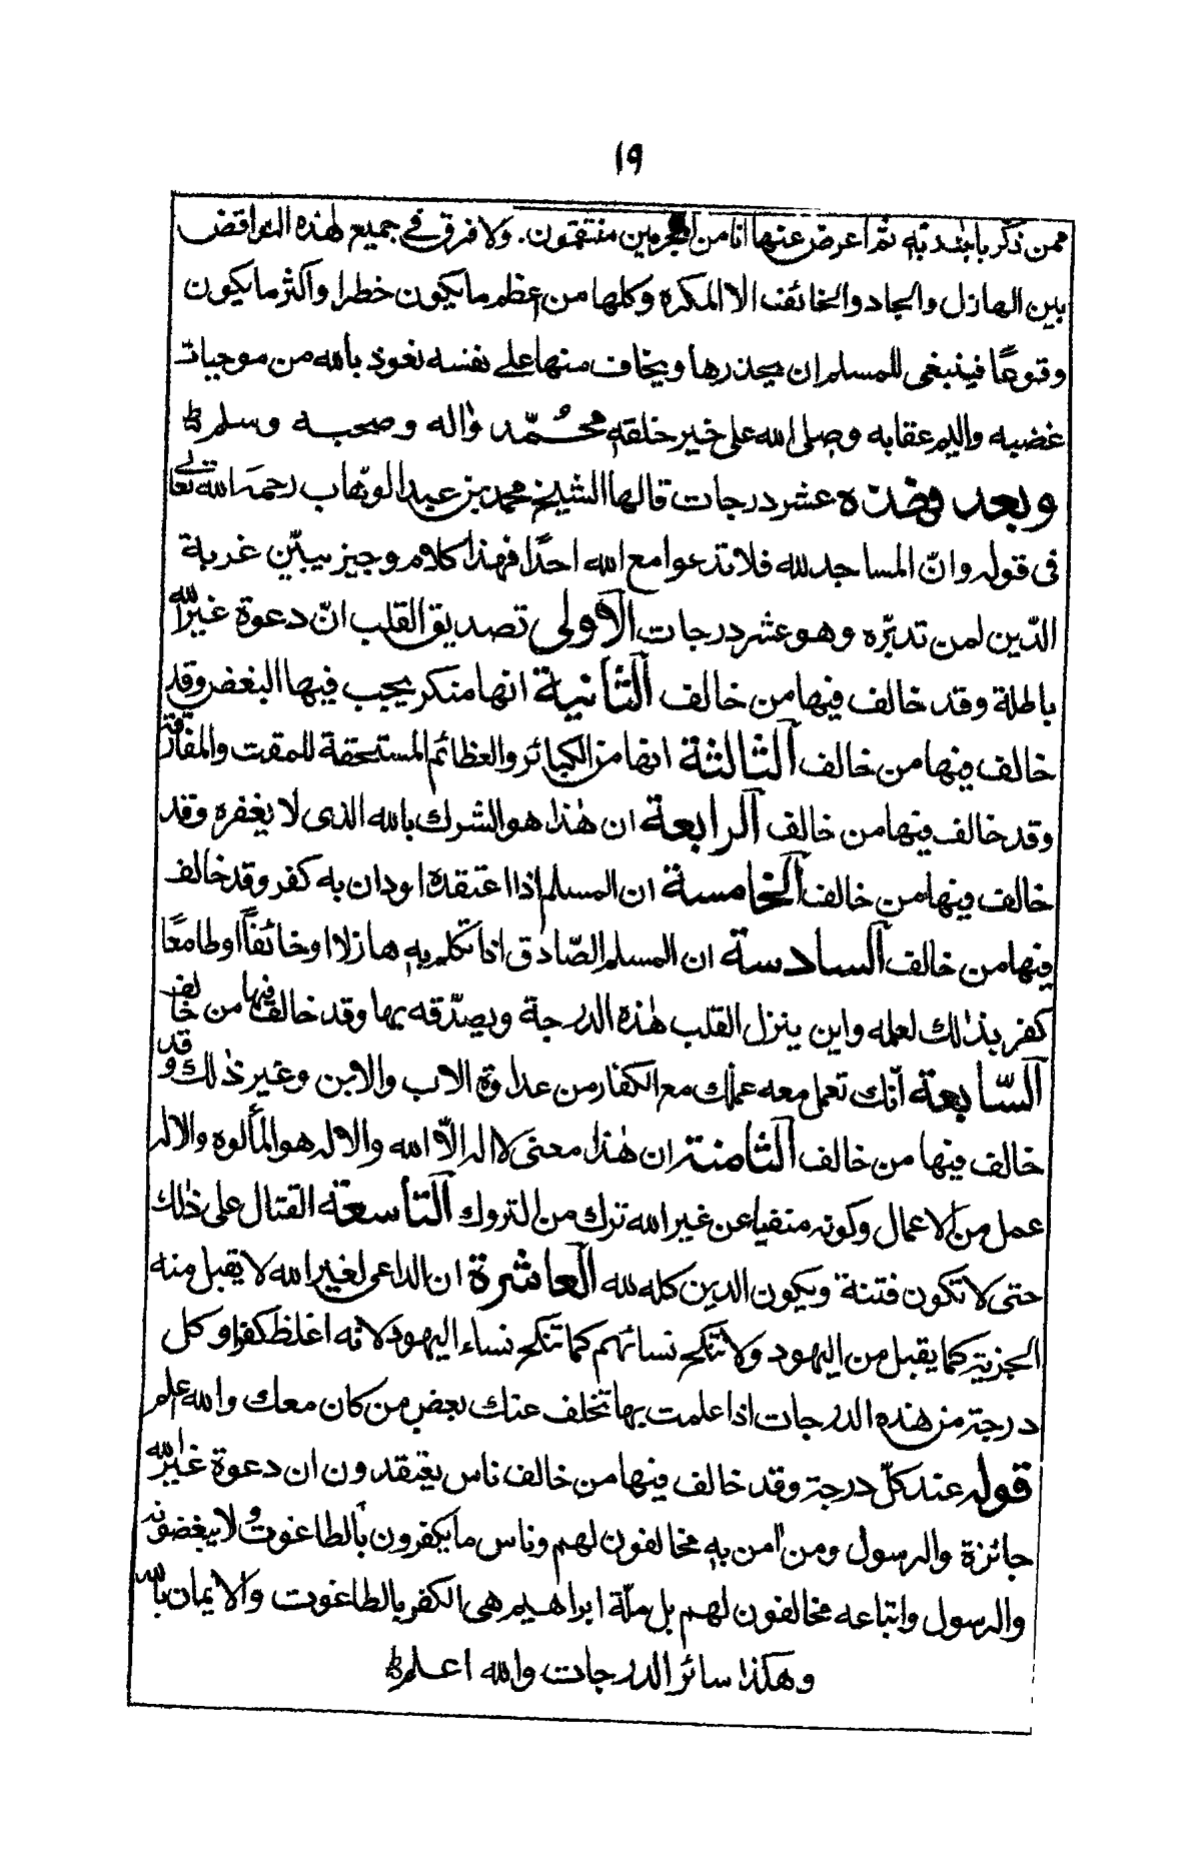 ١٩
ممن ذكر بايٰت ربه ثم اعرض عنها انا من المجرمين منتقمون. ولا فرق في جميع هٰذه النواقض
بين الهازل والجاد والخائف الا المكره وكلها من اعظم ما يكون خطرا واكثر ما يكون
وقوعًا فينبغي للمسلم ان يحذرها ويخاف منها على نفسه نعوذ بالله من موجبات
غضبه واليم عقابه وصلى الله على خير خلقه محمّد واٰله وصحبه وسلم ط
وبعد فهٰذه عشر درجات قالها الشيخ محمد بن عبد الوهّاب رحمه الله تعالى
في قوله وانّ المساجد لله فلا تدعوا مع الله احدًا فهذا كلام وجيز يبيّن غربة
الدّين لمن تدبّره وهو عشر درجات الاولى تصديق القلب انّ دعوة غير الله
باطلة وقد خالف فيها من خالف الثانية انها منكر يجب فيها البغض وقد
خالف فيها من خالف الثالثة انها من الكبائر والعظائم المستحقة للمقت والمفارقة
وقد خالف فيها من خالف الرابعة ان هٰذا هو الشرك بالله الذى لا يغفره وقد
خالف فيها من خالف الخامسة ان المسلم اذا اعتقده او دان به كفر وقد خالف
فيها من خالف السادسة ان المسلم الصّادق اذا تكلم به هازلا او خائفاً او طامعًا
كفر بذالك لعلمه واين ينزل القلب هٰذه الدرجة ويصدّقه بها وقد خالف فيها من خالف
السّابعة أنّك تعمل معه عملك مع الكفار من عداوة الاب والابن وغير ذٰلك وقد
خالف فيها من خالف الثامنة ان هٰذا معنى لا اله الّا الله والاله هو المألوه والاله
عمل من الاعمال وكونه منفيا عن غير الله ترك من التروك التاسعة القتال على ذٰلك
حتى لا تكون فتنة ويكون الدين كله لله العاشرة ان الداعى لغير الله لا يقبل منه
الجزية كما يقبل من اليهود ولا تنكح نسائهم كما تنكح نساء اليهود لانه اغلظ كفرا وكل
درجة من هٰذه الدرجات اذا علمت بها تخلف عنك بعض من كان معك والله اعلم
قوله عند كلّ درجة وقد خالف فيها من خالف ناس يعتقدون ان دعوة غير الله
جائزة والرسول ومن اٰمن به مخالفون لهم وناس ما يكفرون بالطاغوت ولا يبغضونه
والرسول واتباعه مخالفون لهم بل ملّة ابراهيم هى الكفر بالطاغوت والايمان بالله
وهكذا سائر الدرجات والله اعلم ط